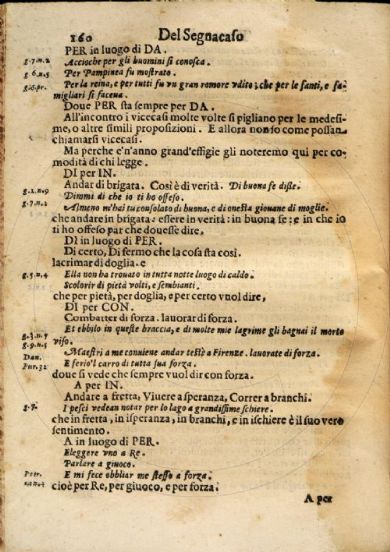 160
Del Segnacaso
PER in luogo di DA.
g.7.n.2 Accioche per gli huomini si conosca.
g.6.n.5 Per Pampinea fu mostrato.
Per la reina, e per tutti fu vn gran romore vdito; che per le fanti, e fa-
migliari si faceua.
Doue PER sta sempre per DA.
All'incontro i vicecasi molte volte si pigliano per le medesi-
me, o altre simili proposizioni. E allora non so come possan
chiamarsi vicecasi.
Ma perche c'n'anno grand'essigie gli noteremo qui per co-
modità di chi legge.
DI per IN.
Andar di brigata. Così è di verità. Di buona fe disse.
g.2.n.9 Dimmi di che io ti ho offeso.
g.7.n.2 Almeno m'hai tu consolato di buona, e di onesta giouane di moglie.
che andare in brigata: essere in verità: in buona fe: e in che io
ti ho offeso par che douesse dire,
DI in luogo di PER.
Di certo, Di fermo che la cosa sta così.
lacrimar di doglia. e
g.5.n.4 Ella non ha trouato in tutta notte luogo di caldo.
Scolorir di pietà volti, e sembianti.
che per pietà, per doglia, e per certo vuol dire,
DI per CON.
Combatter di forza. lauorar di forza.
Et ebbilo in queste braccia, e di molte mie lagrime gli bagnai il morto
viso.
g.9.n.5 Maestri a me conuiene andar testè a Firenze. lauorate di forza.
Dan.
Pur.32 E ferio'l carro di tutta sua forza.
doue si vede che sempre vuol dir con forza.
A per IN.
Andare a fretta, Viuere a speranza, Correr a branchi.
g.7. I pesci vedean notar per lo lago a grandissime schiere.
che in fretta, in isperanza, in branchi, e in ischiere è il suo vero
sentimento.
A in luogo di PER.
Eleggere vno a Re.
Parlare a giuoco.
Petr. E mi fece obbliar me stesso a forza.
cioè per Re, per giuoco, e per forza.
A per